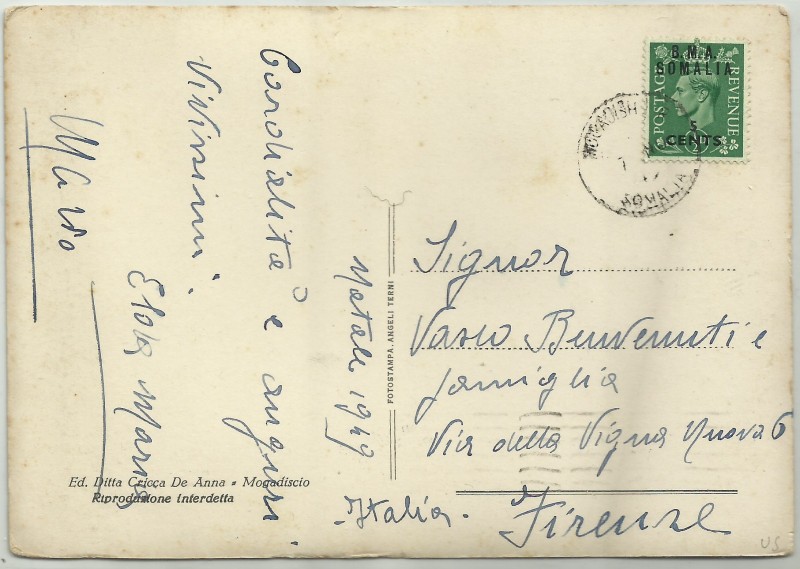 Cordialità e auguri
Vivissimi.
Mario
Natale 1949
Ed. Ditta Cricca De Anna - Mogadiscio
Riproduzione interdetta
FOTOSTAMPA, ANGELI TERNI
B.M.A
SOMALIA
POSTAGE
REVENUE
5
CENTS
SOMALIA
Signor
Vasco Benvenuti e
famiglia
Via della Vigna Nuova 6
-Italia-
Firenze
US